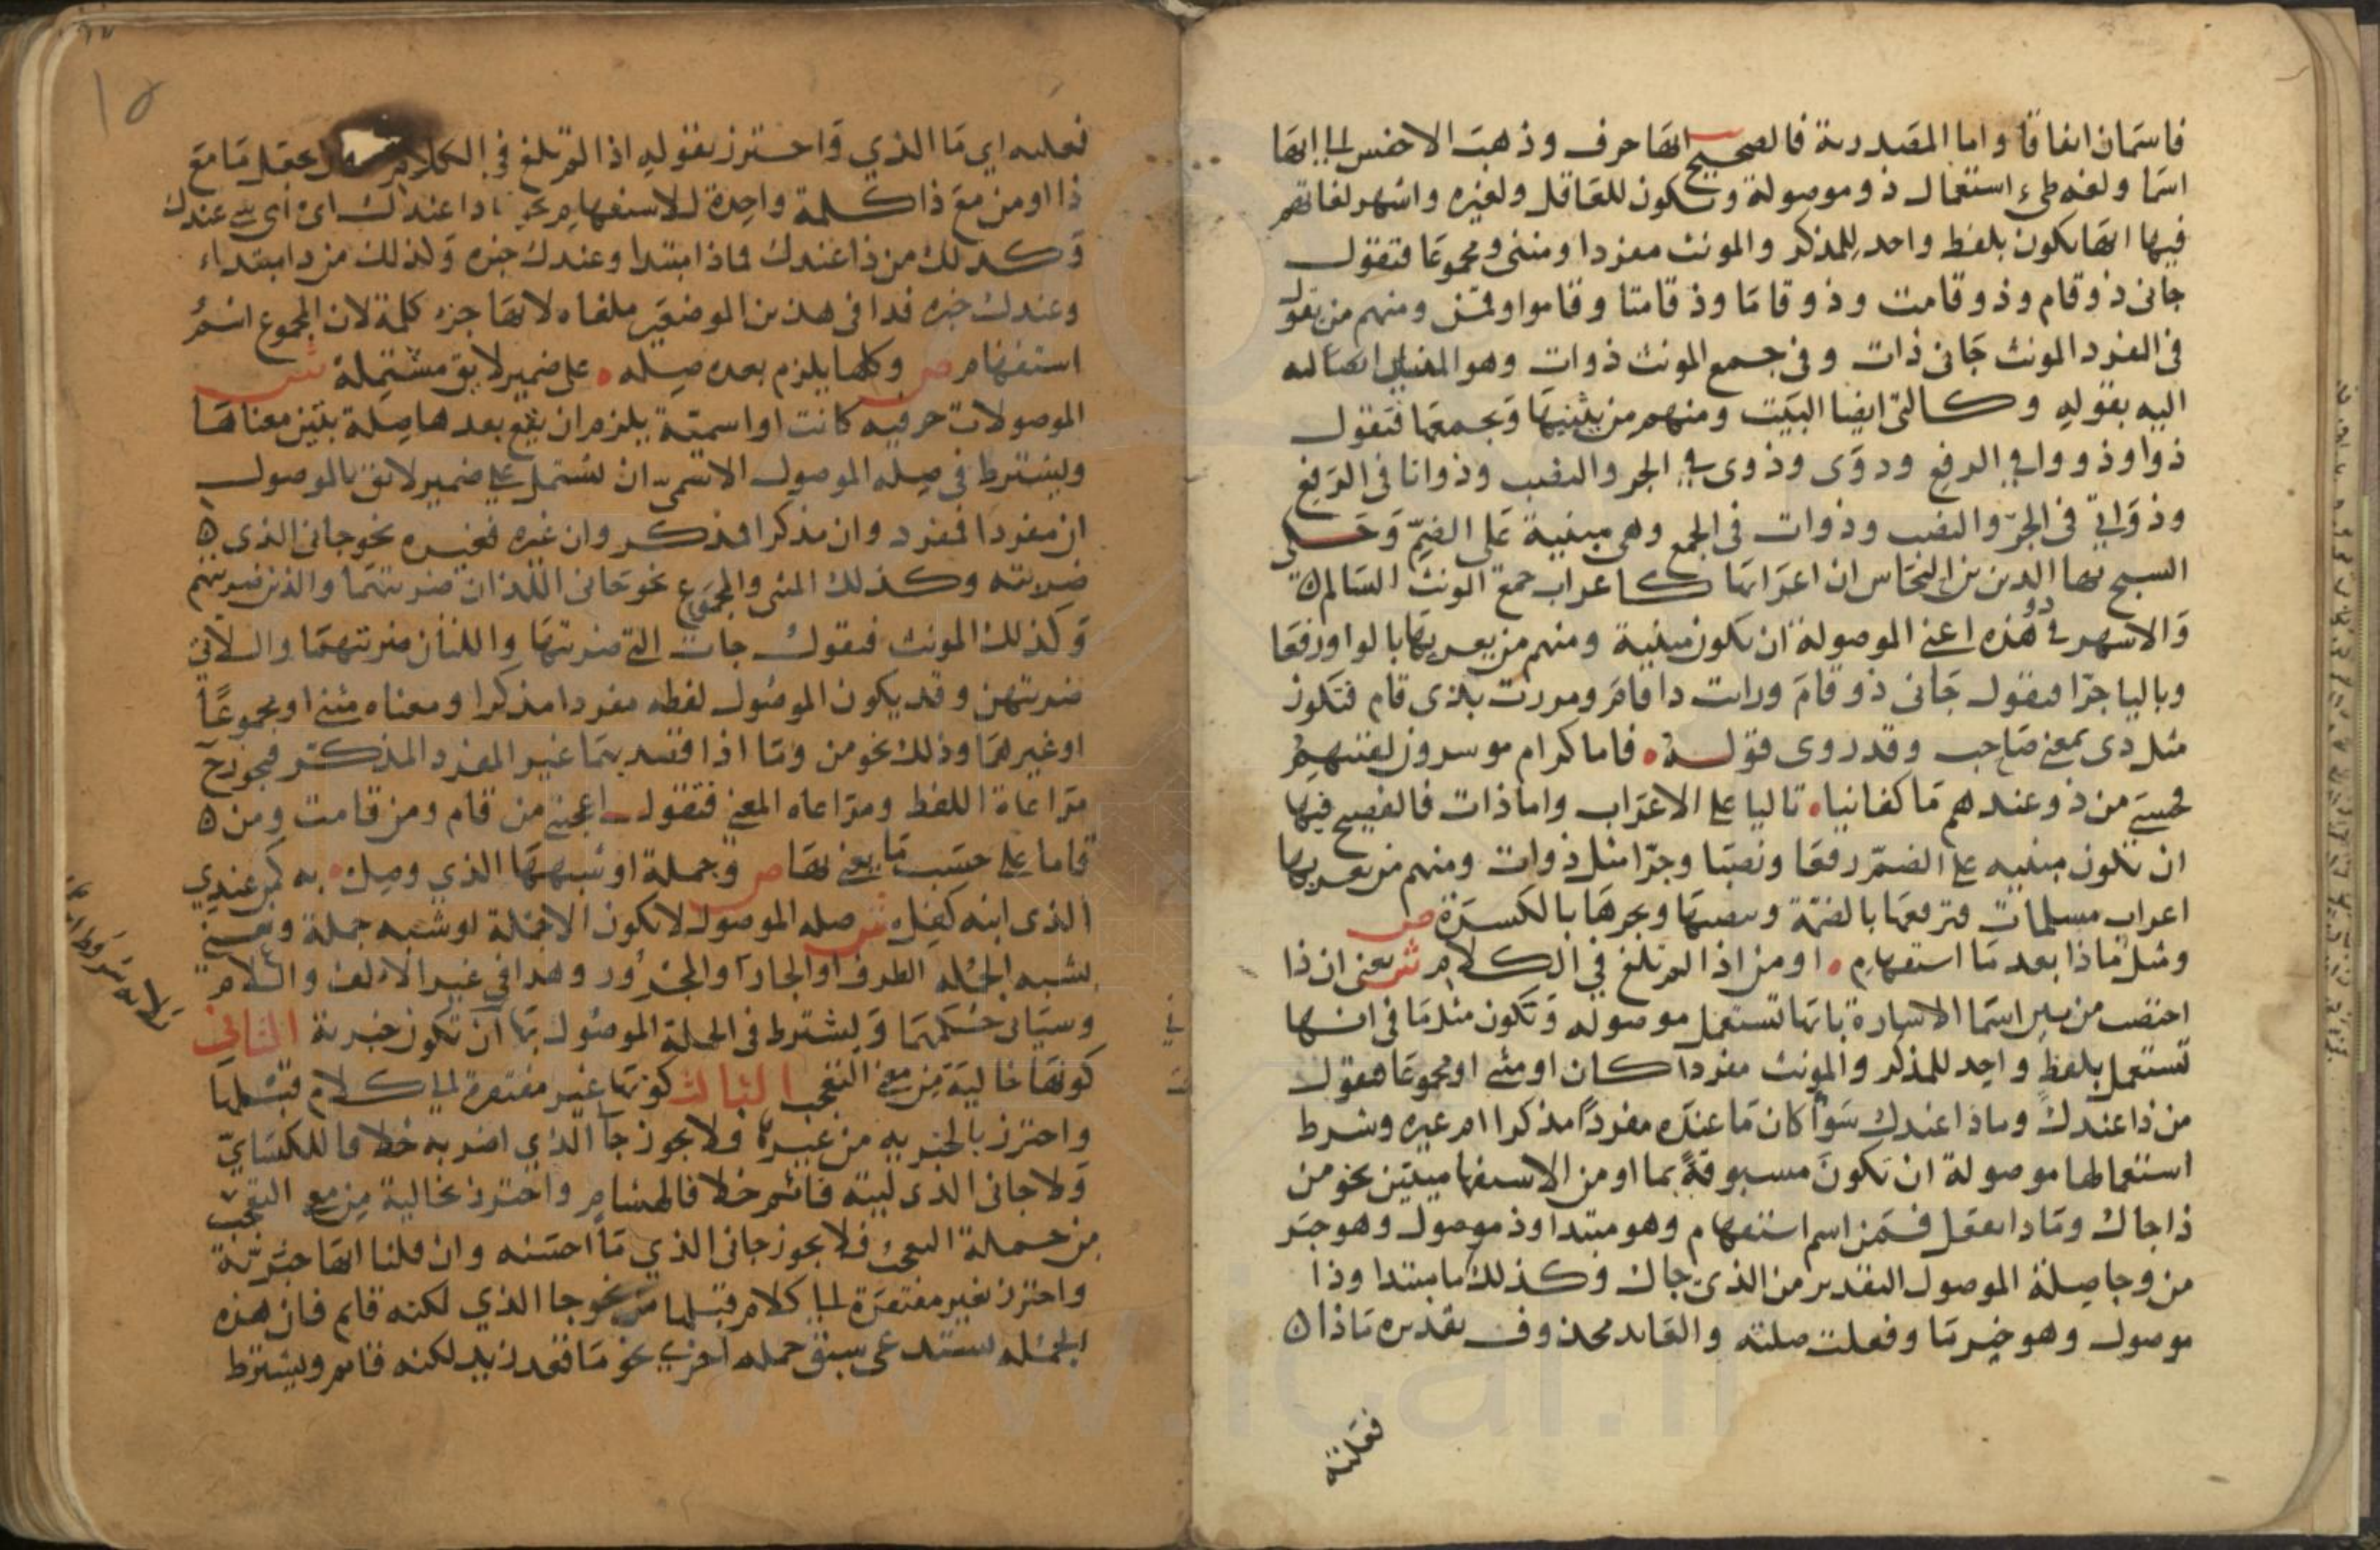 فاسمان اتفاقا واما المصدرية فالصحيح انها حرف وذهب الاخفش الى انها
اسما ولغة طيء استعمال ذو موصولة وتكون للعاقل ولغيره واشهر لغاتهم
فيها انها تكون بلفظ واحد للمذكر والمونث مفردا ومثنى ومجموعا فتقول
جانى ذو قام وذو قامت وذو قاما وذو قامتا وذو قاموا وقمن ومنهم من يقول
فى المفرد المونث جانى ذات وفى جمع المونث ذوات وهو المشار
اليه بقوله وكالتى ايضا البيت ومنهم من يثنيها ويجمعها فتقول
ذوا وذووا فى الرفع وذوى وذوى فى الجر والنصب وذواتا فى الرفع
وذواتى فى الجر والنصب وذوات فى الجمع وهى مبنية على الضم وحكى
الشيخ بها الدين بن النحاس ان اعرابها كاعراب جمع المونث السالم ه
والاشهر فى ذو هذه اعنى الموصولة ان تكون مبنية ومنهم من يعربها بالواو رفعا
وباليا جرا فيقول جانى ذو قام ورايت ذا قام ومررت بذى قام فتكون
مثل ذى بمعنى صاحب وقد روى قوله ٥ فاما كرام موسرون لقيتهم
فحسبى من ذو عندهم ما كفانيا ٥ باليا على الاعراب واما ذات فالفصيح فيها
ان تكون مبنية على الضم رفعا ونصبا وجرا مثل ذوات ومنهم من يعربها
اعراب مسلمات فترفعها بالضمة وينصبها ويجرها بالكسرة ص
ومثل ما ذا بعد ما استفهام ٥ او من اذا لم تلغ فى الكلام ش يعنى ان ذا
اختصت من بين اسما الاشارة بانها تستعمل موصوله وتكون مثل ما فى انها
تستعمل بلفظ واحد للمذكر والمونث مفردا كان او مثنى او مجموعا فتقول
من ذا عندك وماذا عندك سوا كان ما عنده مفردا مذكرا ام غيره وشرط
استعمالها موصولة ان تكون مسبوقة بما او من الاستفهاميتين نحو من
ذا جاك وماذا فعل فمن اسم استفهام وهو مبتدا وذ موصول وهو خبر
من وجا صلة الموصول التقدير من الذى جاك وكذلك ما مبتدا وذا
موصول وهو خبر ما وفعلت صلته والعايد محذوف تقديره ماذا ه
فعلته
١٥
فعلته اى ما الذي واحترز بقوله اذا لم تلغ فى الكلام يجعل ما مع
ذا او من مع ذا كلمة واحدة للاستفهام نحو ماذا عندك اى اى شى عندك
وكذلك من ذا عندك فماذا مبتدا وعندك خبره وكذلك من ذا مبتداء
وعندك خبره فذا فى هذين الموضعين ملغاه لانها جزء كلمة لان المجموع اسم
استفهام ص وكلها يلزم بعده صله ٥ على ضمير لايق مشتمله ش
الموصولات حرفيه كانت او اسمية يلزم ان يقع بعدها صلة تبين معناها
ويشترط فى صلة الموصول الاسمى ان تشتمل على ضمير لائق بالموصول
ان مفردا فمفرد وان مذكرا فمذكر وان غيره فغيره نحو جانى الذى ه
ضربته وكذلك المثنى والمجموع نحو جانى اللذان ضربتهما والذين ضربتهم
وكذلك المونث فتقول جات التى ضربتها واللتان ضربتهما واللاتى
ضربتهن وقد يكون الموصول لفظه مفردا مذكرا ومعناه مثنى او مجموعا
او غيرهما وذلك نحو من وما اذا قصد بهما غير المفرد المذكر فيجوز ح
مراعاة اللفظ ومراعاه المعنى فتقول اعجبنى من قام ومن قامت ومن ه
قاما على حسب ما يعنى بها ص وجملة او شبهها الذي وصل ٥ به كمن عندي
الذى ابنه كفل ش صله الموصول لا تكون الا جملة او شبه جملة ويعنى
بشبه الجمله الظرف او الجار والمجرور وهذا فى غير الالف واللام
وسياتى حكمها ويشترط فى الجملة الموصول بها ان تكون خبرية الثانى
كونها خالية من معنى التعجب الثالث كونها غير مفتقرة الى كلام قبلها
واحترز بالخبريه من غيرها فلا يجوز جا الذي اضربه خلافا للكسائي
ولا جانى الذى ليته قائم خلافا لهشام واحترز بخالية من معنى التعجب
من جملة التعجب فلا يجوز جانى الذي ما احسنه وان قلنا انها خبرية
واحترز بغير مفتقرة الى كلام قبلها من نحو جا الذي لكنه قايم فان هذه
الجمله تستدعى سبق جمله اخرى نحو ما قعد زيد لكنه قائم ويشترط